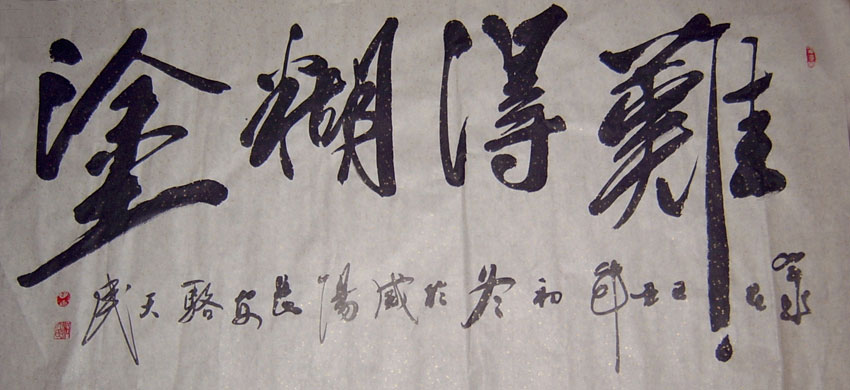 難得糊塗
己丑年初冬於咸陽長安駱天